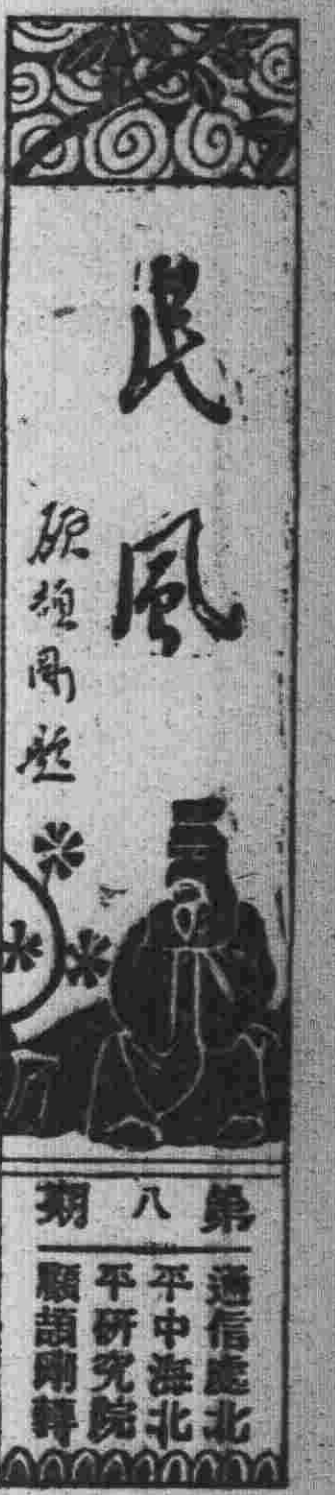 民風
顧頡剛題
第八期
通信處北
平中海北
平研究院
顧頡剛轉